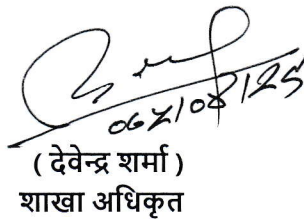 06/08/25
( देवेन्द्र शर्मा )
शाखा अधिकृत